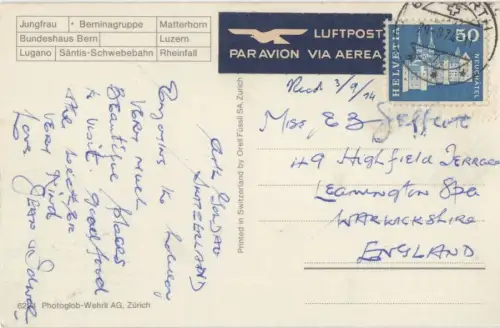 Jungfrau + Berninagruppe Matterhorn
Bundeshaus Bern Luzern
Lugano Säntis-Schwebebahn Rheinfall
LUFTPOST
PAR AVION VIA AEREA
HELVETIA
50
NEUCHATEL
Recd 3/9/74
Arth Goldau
SWITZERLAND
Enjoying the holiday
VERY much
Beautiful places
to visit. good food
the weather
VERY kind
love
Jean
Miss, E B
49 Highfield Terrace
Leamington Spa
WARWICKSHIRE
ENGLAND
Printed in Switzerland by Orell Füssli SA, Zürich
Photoglob-Wehrli AG, Zürich